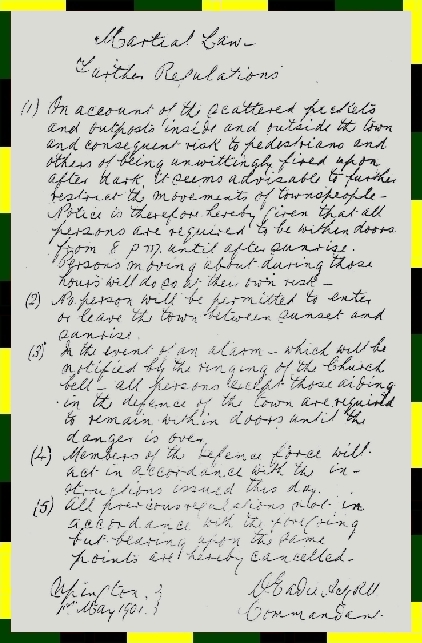 Martial Law -
Further Regulations
(1) On account of the scattered pickets
and outposts inside and outside the town
and consequent risk to pedestrians and
others of being unwittingly fired upon
after dark, it seems advisable to further
restrict the movements of townspeople -
Notice is therefore hereby given that all
persons are required to be within doors
from 8 p m. until after sunrise.
Persons moving about during those
hours will do so at their own risk -
(2) No person will be permitted to enter
or leave the town between sunset and
sunrise.
(3) In the event of an alarm - which will be
notified by the ringing of the Church
bell - all persons except those aiding
in the defence of the town are required
to remain within doors until the
danger is over.
(4) Members of the defence force will
act in accordance with the in-
structions issued this day.
(5) All previous regulations not in
accordance with the foregoing
but bearing upon the same
points are hereby cancelled -
Upington
May 1901
Commandant.